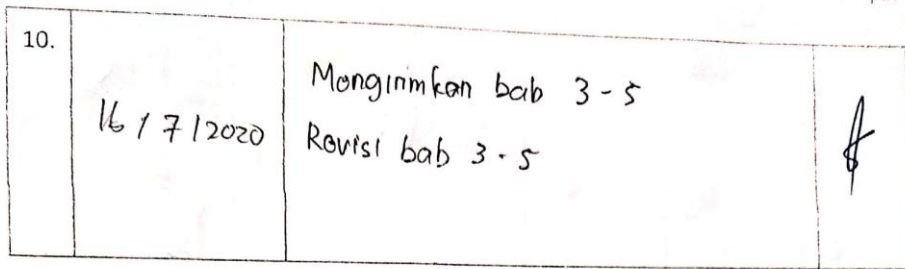 10.
16/7/2020
Mengirimkan bab 3-5
Revisi bab 3-5